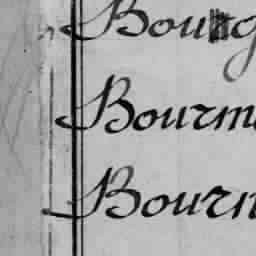 Bourg
Bourm
Bourn